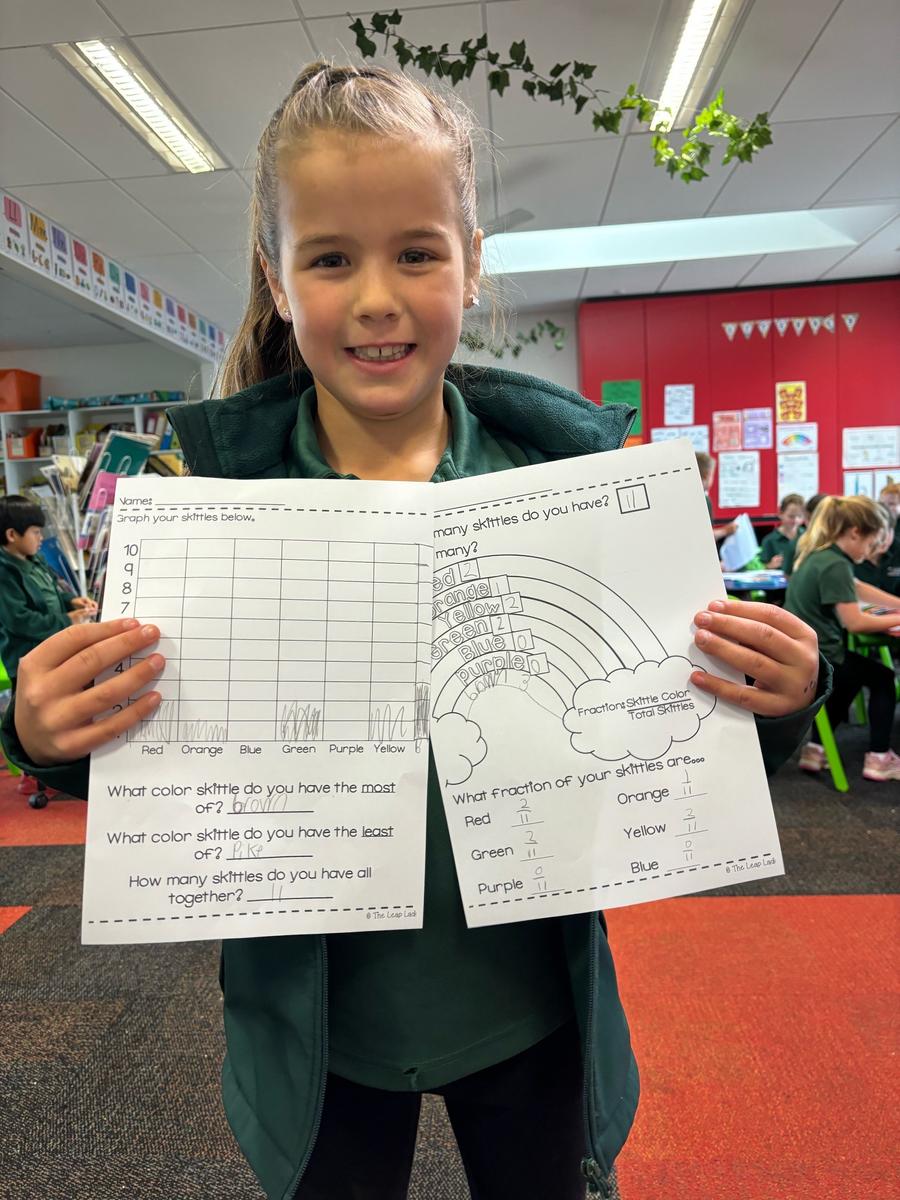 Name:
Graph your skittles below.
10
9
8
7
4
Red Orange Blue Green Purple Yellow
What color skittle do you have the most
of? brown
What color skittle do you have the least
of?
How many skittles do you have all
together? 11
© The Leap Lad
many skittles do you have? 11
many?
ed 2
range 1
Yellow 2
Green 2
Blue 0
Purple 0
brown 3
Fraction: Skittle Color
Total Skittles
What fraction of your skittles are...
Red 2/11
Orange 1/11
Green 2/11
Yellow 2/11
Purple 0/11
Blue 0/11
© The Leap Lad